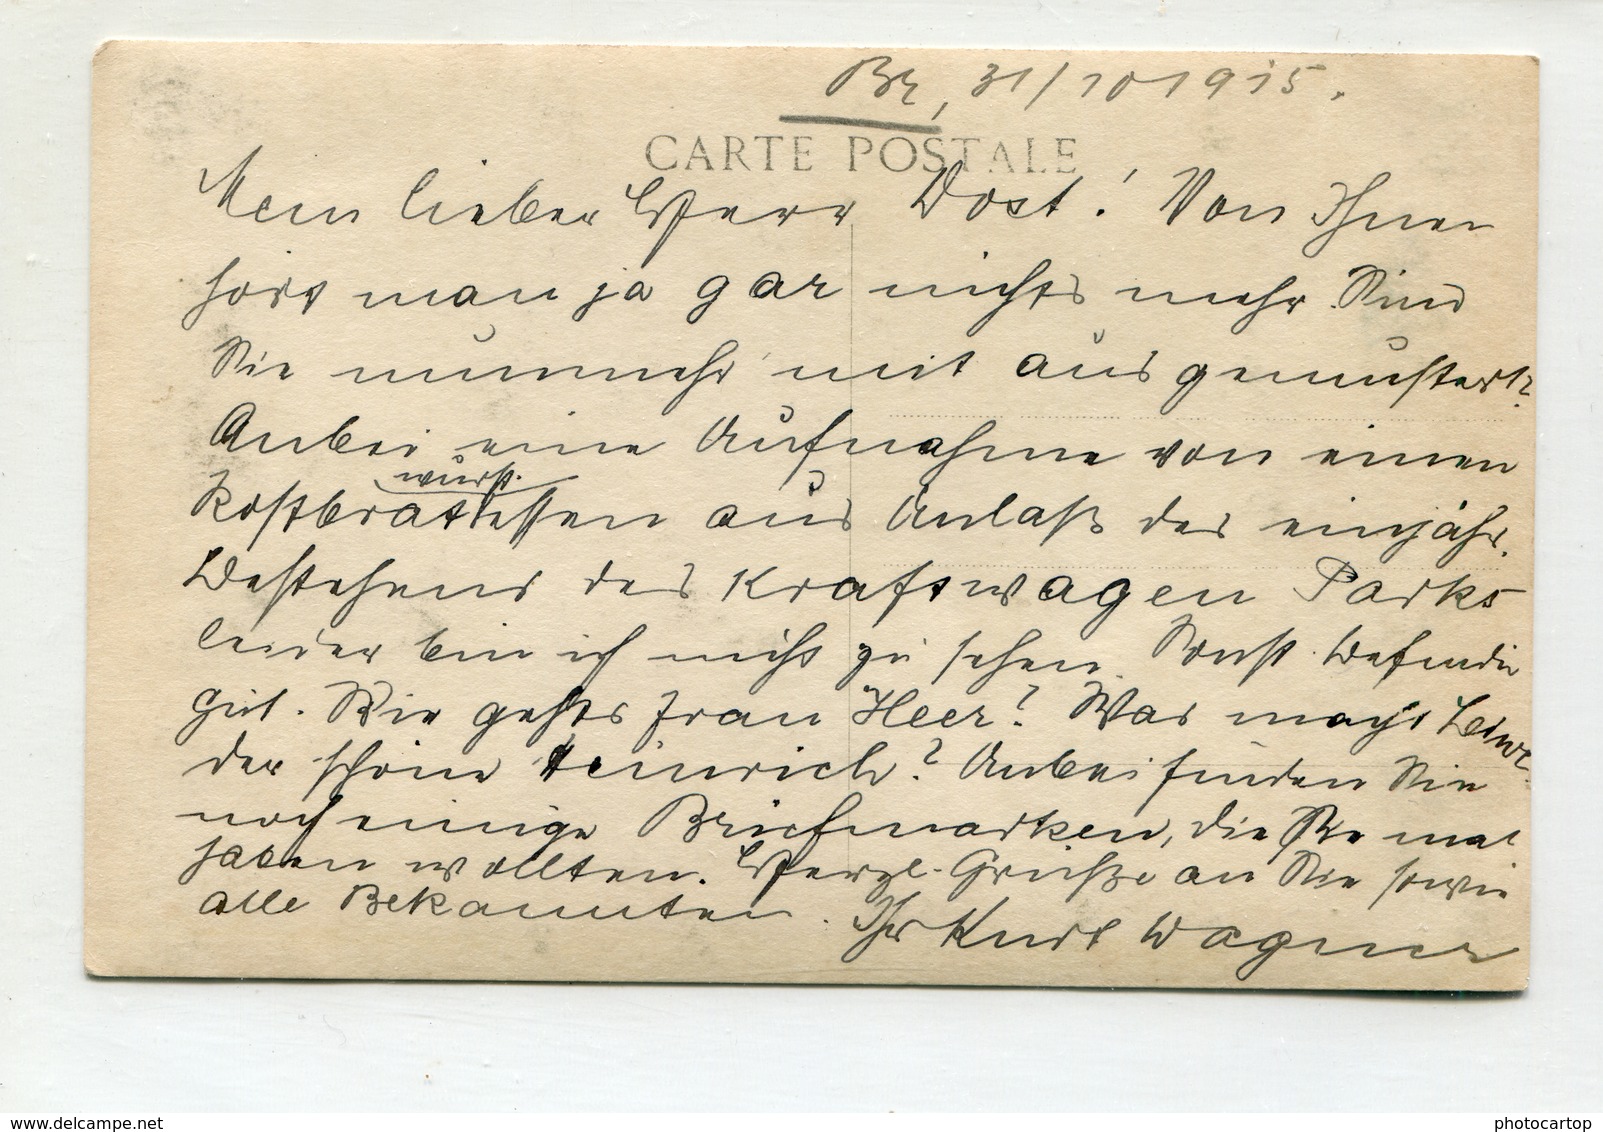 Br, 31/10 1915.
CARTE POSTALE
Mein lieber Herr Dost! Von Ihnen
hört man ja gar nichts mehr. Sind
Sie nunmehr mit ausgemustert?
Anbei eine Aufnahme von einem
wurst
Rostbratessen aus Anlaß des einjähr.
Bestehens des Kraftwagen Parks
leider bin ich nicht zu sehen. Sonst befinde
gut. Wie gehts Frau Heer? Was macht
der schöne Heinrich? Anbei finden Sie
noch einige Briefmarken, die Sie mal
haben wollten. Herzl. Grüße an Sie sowie
alle Bekannten. Ihr Kurt Wagner
www.delcampe.net
photocartop